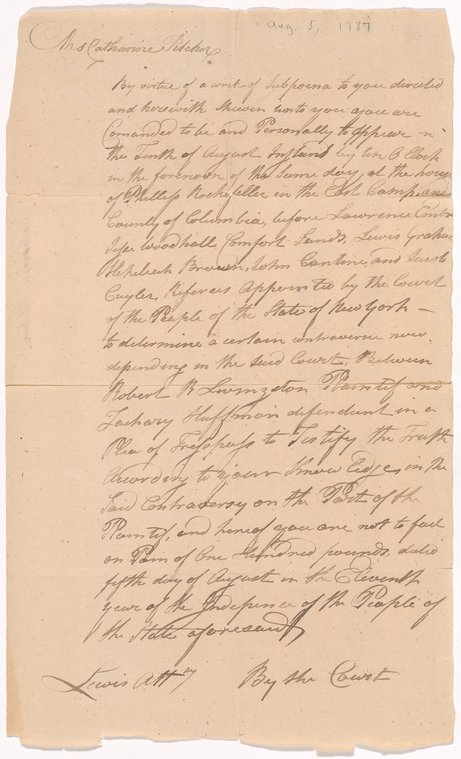 Aug. 5, 1787
Mrs Catharine Pitcher
By virtue of a writ of Subpoena to you directed
and herewith Shewen unto you you are
Comanded to be and Personally to Appear on
the Tenth of August Instand by ten O Clock
in the forenoon of the Same day, at the house
of Phillip Rockefeller in the East Camp, and
County of Columbia, before Lawrence
Woodhull, Comfort Sands, Lewis Graham
Brown, John Cantine, and Jacob
Cuyler, Referees Appointed by the Court
of the People of the State of New York —
to determine a certain controverse now
depending in the said Court, Between
Robert R Livingston Plaintif and
Zachary Huffman defendant in a
Plea of Tresspass to Testify the Truth
According to your Knowledge in the
Said Contraversy on the Part of the
Plaintif, and hereof you are not to fail
on Pain of One Hundred pounds, dated
fifth day of August in the Eleventh
year of the Indepence of the People of
the State aforesaid
Lewis Atty By the Court